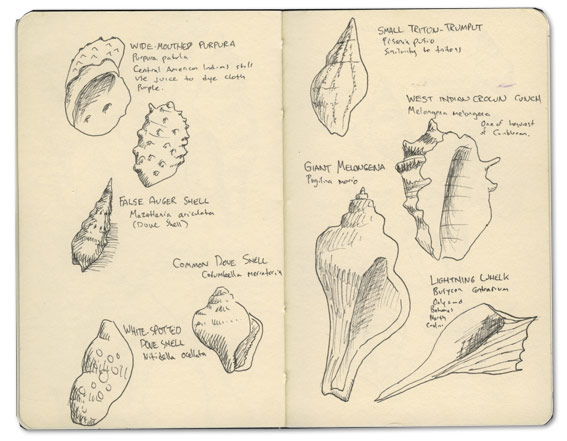 WIDE-MOUTHED PURPURA
Purpura patula
Central American Indians still
use juice to dye cloth
Purple.
FALSE AUGER SHELL
(Dove Shell)
COMMON DOVE SHELL
Columbella mercatoria
WHITE-SPOTTED
DOVE SHELL
Nitidella ocellata
SMALL TRITON-TRUMPUT
Pisania pusio
Similarity to tritons
WEST INDIAN CROWN CUNCH
Melongena melongena
One of largest
of Caribbean.
GIANT MELONGENA
Pugilina morio
LIGHTNING WHELK
Busycon
Bahamas
North